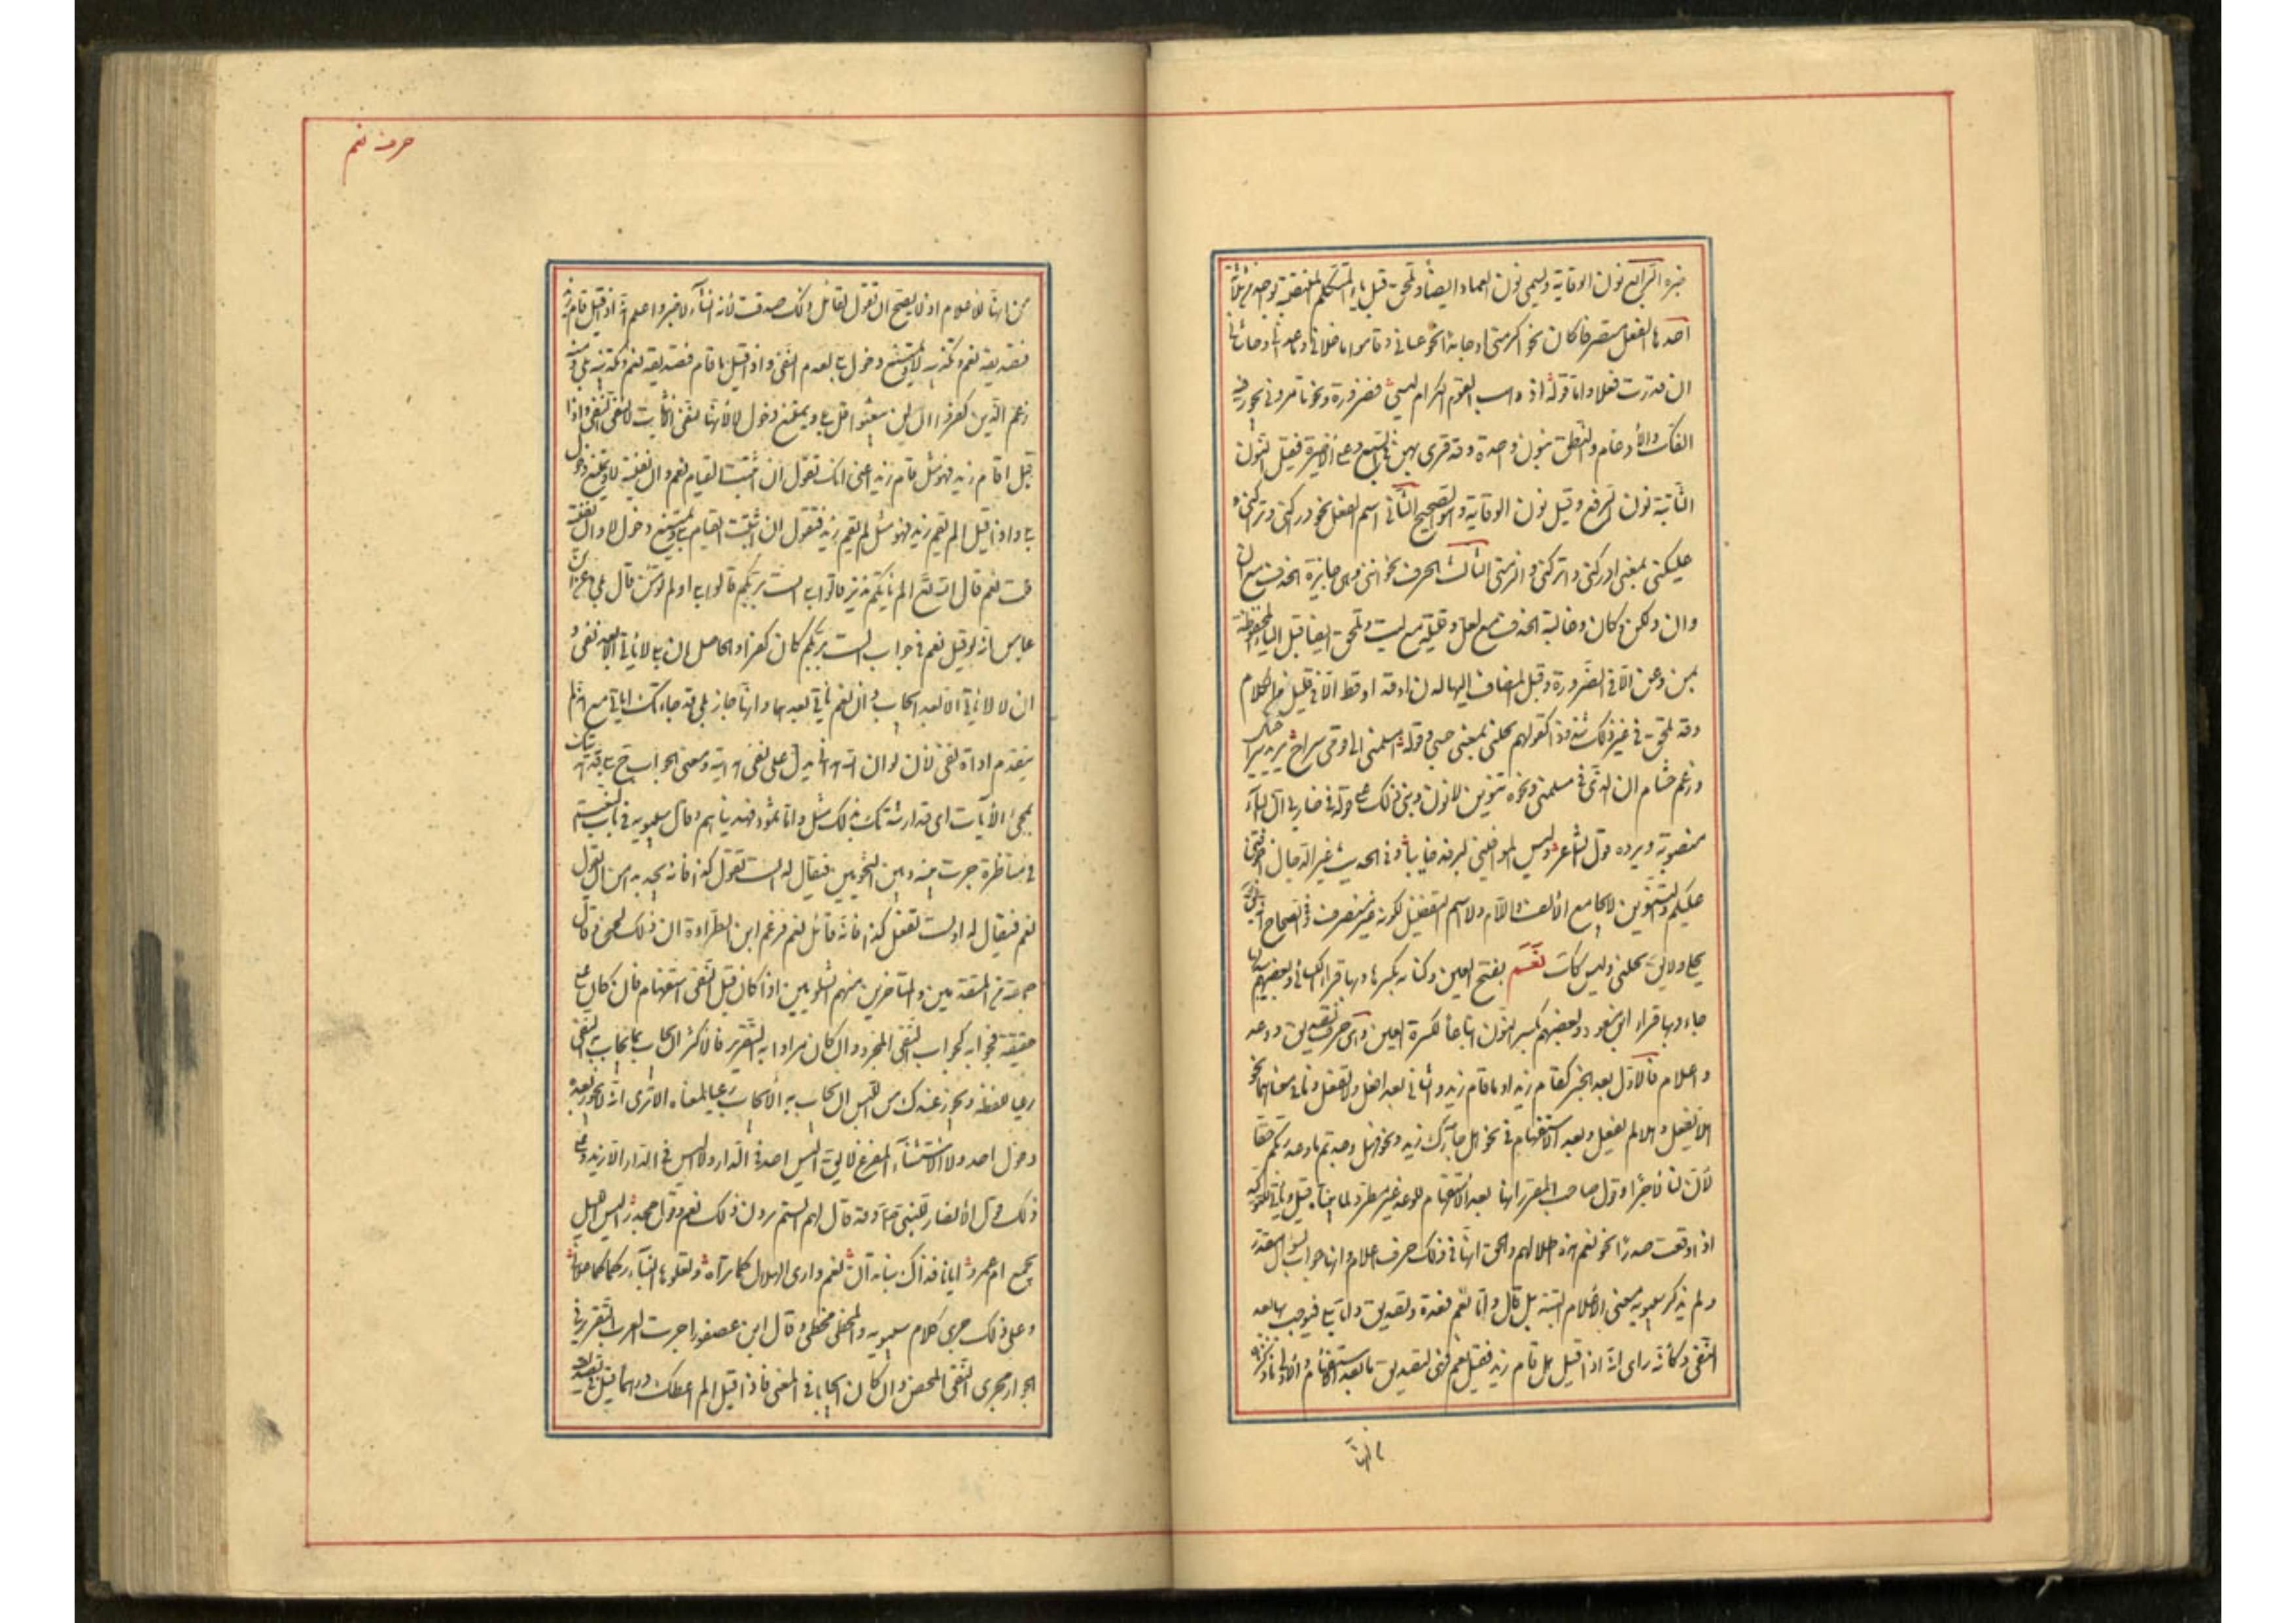 غيره الرابع نون الوقاية وليسمى نون العماد ايضا وتلحق قبل ياء المتكلم المنتصبة بواحد من ثلثة
احدها الفعل متصرفا كان نحو اكرمني او جامدا نحو عساني وقاموا ما خلاني وما عداني وحاشاني
ان قدرت فعلا واما قوله اذ ذهب القوم الكرام ليسي فضرورة ونحو تامرونني يجوز فيه
الفك والادغام والنطق بنون واحدة وقد قرى بهن في السبع وعلى الاخيرة فقيل النون
الثابتة نون الرفع وقيل نون الوقاية وهو الصحيح الثاني اسم الفعل نحو دراكني وتراكني و
عليكني بمعنى ادركني واتركني والزمني الثالث الحرف نحو انني وهي جايزة الحذف مع ان
وان ولكن وكان وغالبة الحذف مع لعل وقليلته مع ليت وتلحق ايضا قبل الياء المخفوضة
بمن وعن الا في الضرورة وقبل المضاف اليها لدن او قد او قط الا في قليل من الكلام
وقد تلحق في غير ذلك شذوذا كقولهم بجلني بمعنى حسبي وقوله امسلمني الى قومي شراحي يريد شراحيل
وزعم هشام ان الذي في مسلمني ونحوه تنوين لا نون وبنى ذلك على قوله في ضاربي ان الياء
منصوبة ويرده قول الشاعر وليس الموافيني ليرفد خايبا وفي الحديث غير الدجال اخوفني
عليكم والتنوين لا يجامع الالف واللام ولا اسم التفضيل لكونه غير منصرف وفي الصحاح انه يقال
بجلي ولا يق بجلني وليس كذلك نَعَم بفتح العين وكنانة بكسرها وبها قرا الكسائي وبعضهم يبدلها
حاء وبها قراء ابن مسعود وبعضهم بكسر النون اتباعا لكسرة العين وهي حرف تصديق ووعد
واعلام فالاول بعد الخبر كقام زيد او ما قام زيد والثاني بعد افعل ولا تفعل وما في معناهما نحو
هلا تفعل وهلا لم تفعل وبعد الاستفهام في نحو هل جاءك زيد ونحو فهل وجدتم ما وعد ربكم حقا
لان لنا لاجرا وقول صاحب المقرب انها بعد الاستفهام للوعد غير مطرد لما بيناه قيل وتاتي للتوكيد
اذا وقعت صدرا نحو نعم هذه اطلالهم والحق انها في ذلك حرف اعلام وانها جواب لسؤال مقدر
ولم يذكر سيبويه معنى الاعلام البتة بل قال واما نعم فعدة وتصديق واما بلى فيوجب بها بعد
النفي وكانه راى انه اذا قيل هل قام زيد فقيل نعم فهي لتصديق ما بعد الاستفهام والاولى ما ذكرناه
من انها
حرف نعم
من انها للاعلام اذ لا يصح ان تقول لقائل ذلك صدقت لانه انشاء لا خبر واعلم انه اذا قيل قام زيد
فتصديقه نعم وتكذيبه لا ويمتنع دخول بلى لعدم النفي واذا قيل ما قام فتصديقه نعم وتكذيبه بلى ومنه
زعم الذين كفروا ان لن يبعثوا قل بلى ويمتنع دخول لا لانها لنفي الاثبات لا لنفي النفي واذا
قيل اقام زيد فهو مثل قام زيد اعني انك تقول ان اثبت القيام نعم وان نفيته لا ويمتنع دخول
بلى واذا قيل الم يقم زيد فهو مثل لم يقم زيد فتقول ان اثبت القيام بلى ويمتنع دخول لا وان نفيته
قلت نعم قال الله تع الم ياتكم نذير قالوا بلى الست بربكم قالوا بلى اولم تؤمن قال بلى وعن ابن
عباس انه لو قيل نعم في جواب الست بربكم كان كفرا والحاصل ان بلى لا تاتي الا بعد نفي و
ان لا لا تاتي الا بعد ايجاب وان نعم تاتي بعدهما وانما جاز بلى قد جاءتك اياتي مع انه لم
يتقدم اداة نفي لان لو ان الله هداني يدل على نفي هدايته ومعنى الجواب ح بلى قد هديتك
بمجئ الايات اي قد ارشدتك بذلك مثل واما ثمود فهديناهم وقال سيبويه في باب النعت
في مناظرة جرت بينه وبين النحويين فيقال له الست تقول كذا فانه لا يجد بدا من ان يقول
نعم فيقال له افلست تفعل كذا فانه قائل نعم فزعم ابن الطراوة ان ذلك لحن وقال
جماعة من المتقدمين والمتاخرين منهم الشلوبين اذا كان قبل النفي استفهام فان كان على
حقيقته فجوابه كجواب النفي المجرد وان كان مرادا به التقرير فالاكثر ان يجاب بما يجاب به النفي
رعيا للفظه ويجوز عند امن اللبس ان يجاب بما يجاب به الايجاب رعيا لمعناه الا ترى انه لا يجوز بعده
دخول احد ولا الاستثناء المفرغ لا يق اليس احد في الدار ولا اليس في الدار الا زيد وعلى
ذلك قول الانصار للنبي ص وقد قال لهم الستم ترون ذلك نعم وقول جحدر اليس الليل
يجمع ام عمرو وايانا فذاك بنا تدان نعم وارى الهلال كما تراه ويعلوها النهار كما علاني
وعلى ذلك جرى كلام سيبويه والمخطئ مخطئ وقال ابن عصفور اجرت العرب التقرير في
الجواب مجرى النفي المحض وان كان ايجابا في المعنى فاذا قيل الم اعطك درهما قيل في تصديقه